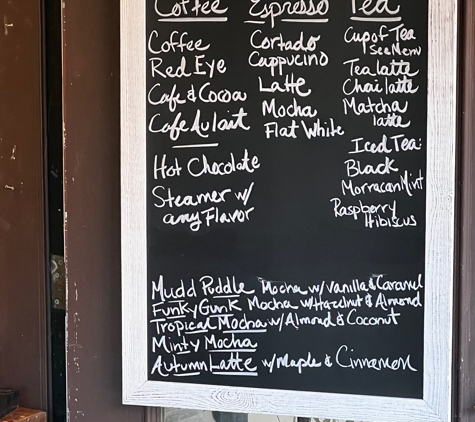 Coffee Espresso Tea
Coffee
Red Eye
Cafe & Cocoa
Cafe Au lait
Hot Chocolate
Steamer w/
any Flavor
Cortado
Cappucino
Latte
Mocha
Flat White
Cup of Tea
See Menu
Tea latte
Chai latte
Matcha
latte
Iced Tea:
Black
Morracan Mint
Raspberry
Hibiscus
Mudd Puddle Mocha w/ Vanilla & Caramel
Funky Gunk Mocha w/ Hazelnut & Almond
Tropical Mocha w/ Almond & Coconut
Minty Mocha
Autumn Latte w/ Maple & Cinnamon